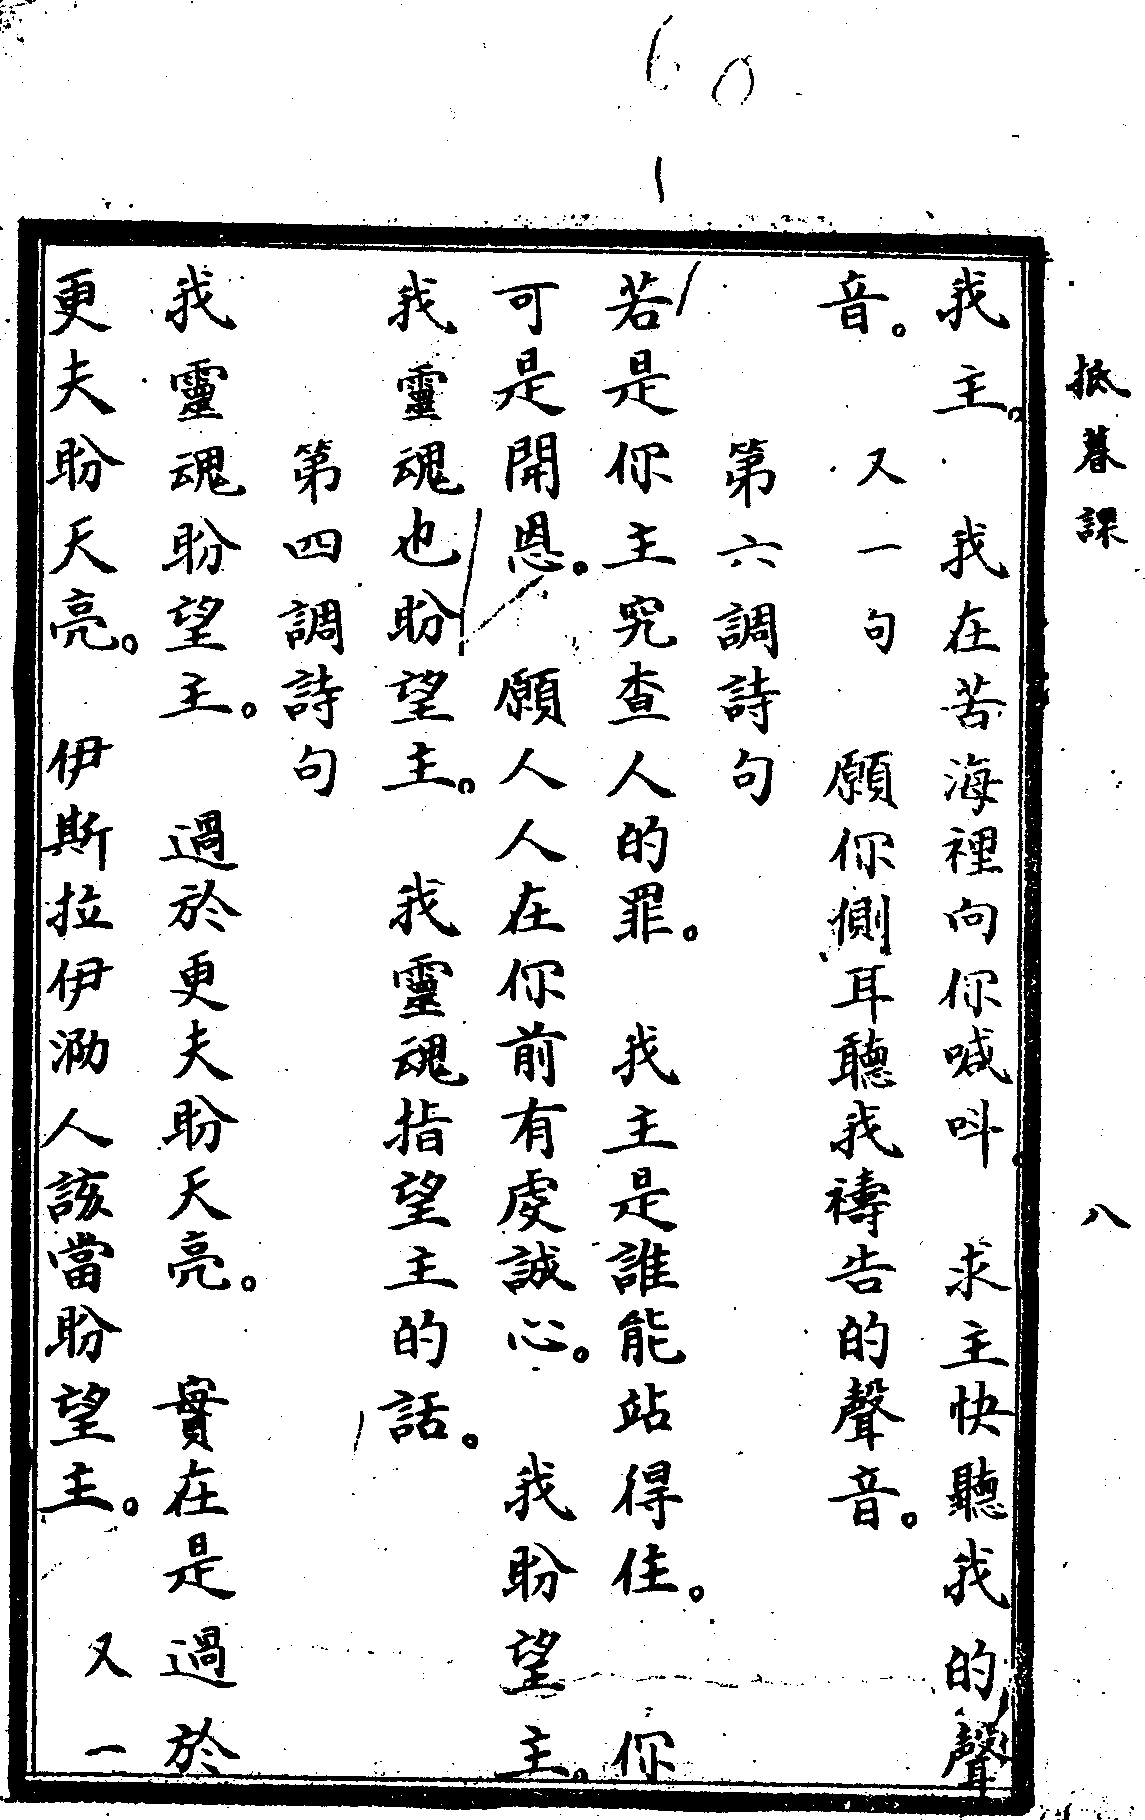 抵暮課
八
我主。 我在苦海裡向你喊呌。 求主快聽我的聲
音。 又一句 願你側耳聽我禱告的聲音。
第六調詩句
若是你主究查人的罪。 我主是誰能站得住。 你
可是開恩。 願人人在你前有虔誠心。 我盼望主。
我靈魂也盼望主。 我靈魂指望主的話。
第四調詩句
我靈魂盼望主。 過於更夫盼天亮。 實在是過於
更夫盼天亮。 伊斯拉伊泐人該當盼望主。 又一